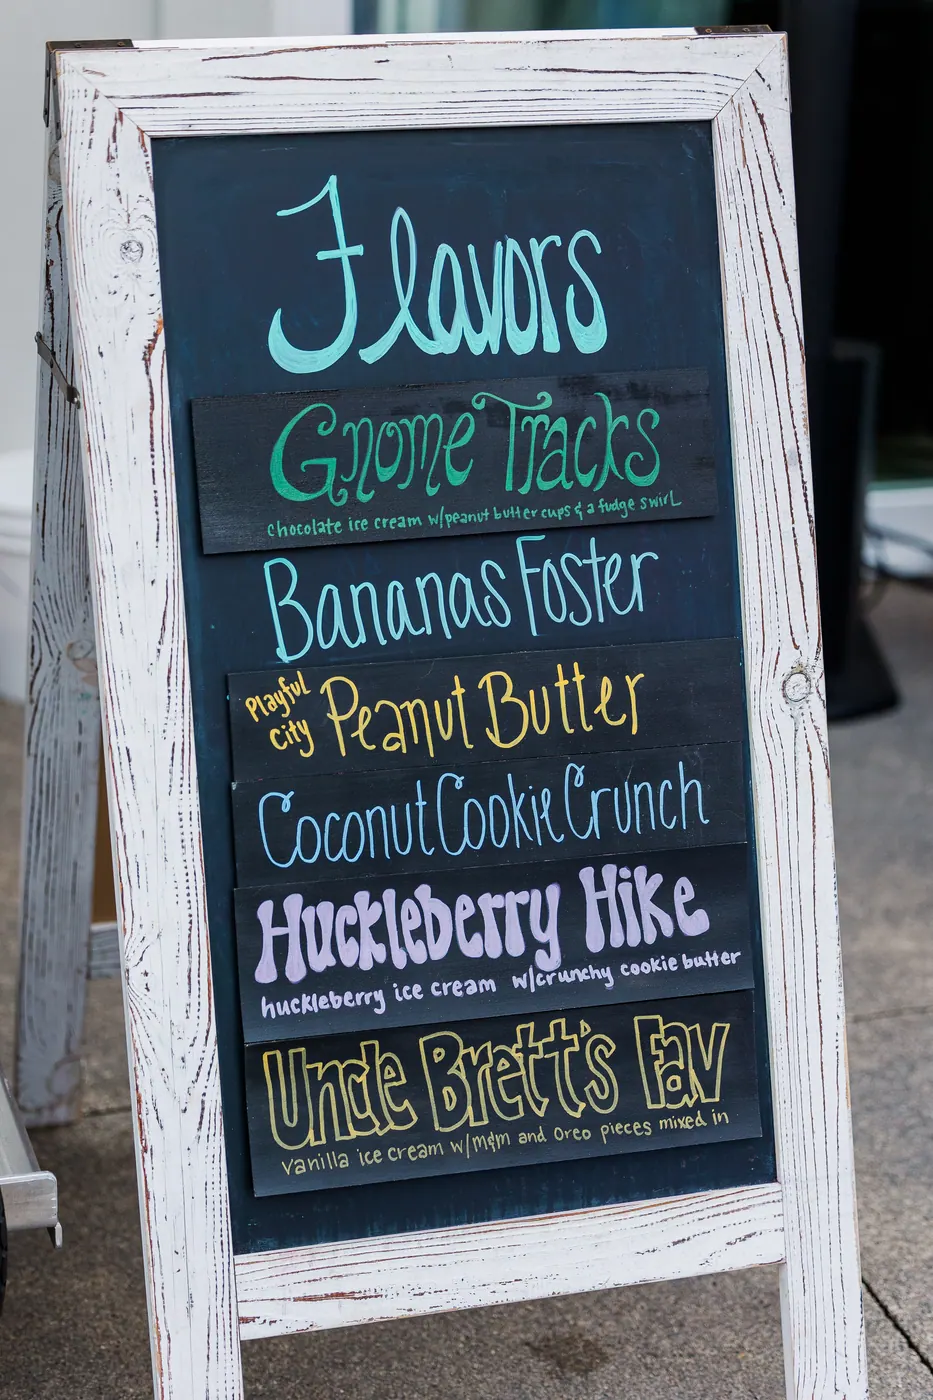 Flavors
Gnome Tracks
chocolate ice cream w/peanut butter cups & a fudge swirl
Bananas Foster
Playful City Peanut Butter
Coconut Cookie Crunch
Huckleberry Hike
huckleberry ice cream w/crunchy cookie butter
Uncle Brett's Fav
vanilla ice cream w/m&m and oreo pieces mixed in